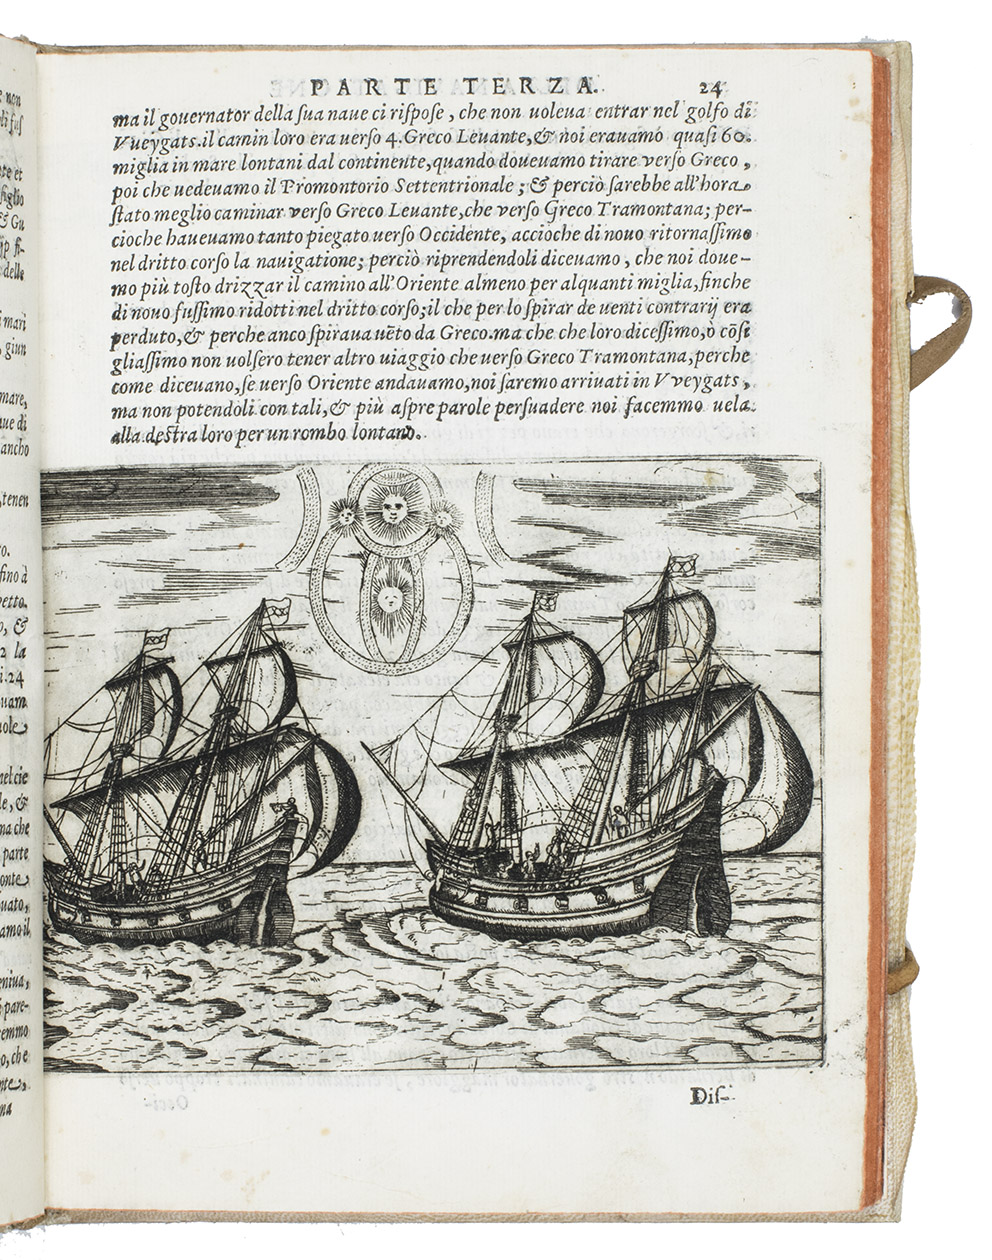 PARTE TERZA. 24
ma il governator della sua naue ci rispose, che non uoleua entrar nel golfo di
Vueygats. il camin loro era uerso 4. Greco Leuante, & noi erauamo quasi 60.
miglia in mare lontani dal continente, quando doueuamo tirare verso Greco,
poi che uedeuamo il Promontorio Settentrionale; & perciò sarebbe all'hora
stato meglio caminar verso Greco Leuante, che verso Greco Tramontana; per-
cioche haueuamo tanto piegato uerso Occidente, accioche di nouo ritornassimo
nel dritto corso la nauigatione; perciò riprendendoli diceuamo, che noi doue-
mo più tosto drizzar il camino all'Oriente almeno per alquanti miglia, finche
di nouo fussimo ridotti nel dritto corso; il che per lo spirar de uenti contrarij era
perduto, & perche anco spiraua uẽto da Greco. ma che che loro dicessimo, ò cõsi
gliassimo non uolsero tener altro uiaggio che uerso Greco Tramontana, perche
come diceuano, se uerso Oriente andauamo, noi saremo arriuati in Vveygats,
ma non potendoli con tali, & più aspre parole persuadere noi facemmo uela
alla destra loro per un rombo lontano.
Dis-